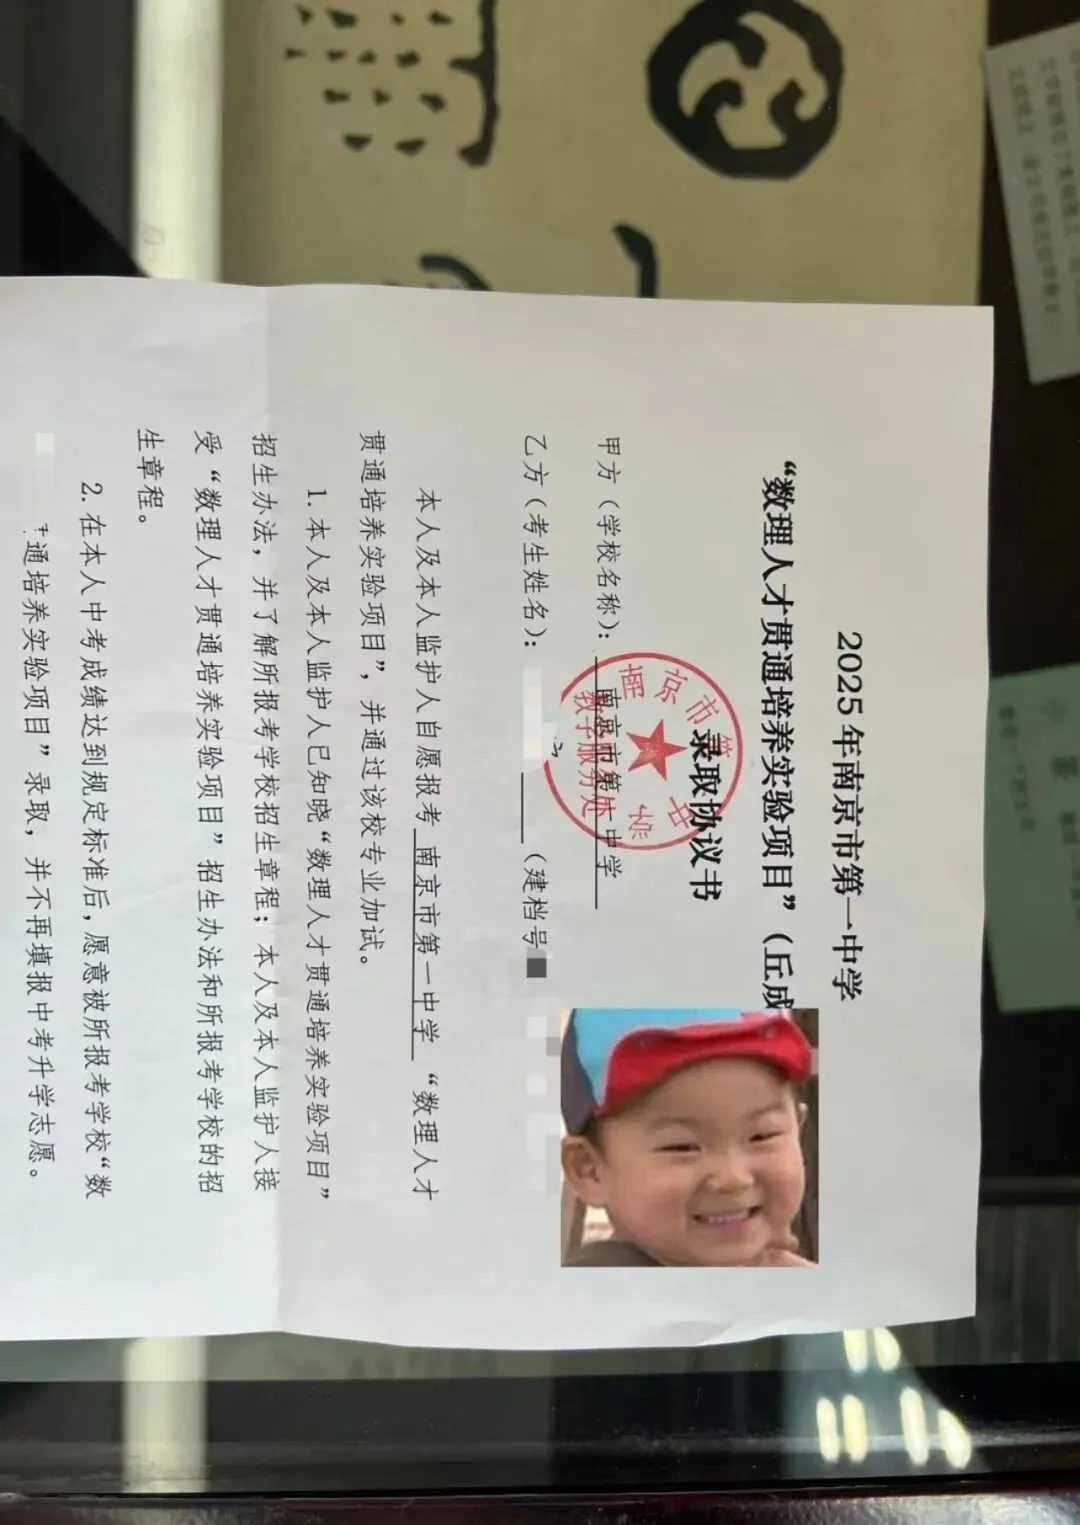 2025年南京市第一中学
“数理人才贯通培养实验项目”（丘成
录取协议书
甲方（学校名称）：南京市第一中学
乙方（考生姓名）：（建档号
南京市第一中学
教学服务处
本人及本人监护人自愿报考 南京市第一中学 “数理人才
贯通培养实验项目”，并通过该校专业加试。
1. 本人及本人监护人已知晓“数理人才贯通培养实验项目”
招生办法，并了解所报考学校招生章程；本人及本人监护人接
受“数理人才贯通培养实验项目”招生办法和所报考学校的招
生章程。
2. 在本人中考成绩达到规定标准后，愿意被所报考学校“数
通培养实验项目”录取，并不再填报中考升学志愿。